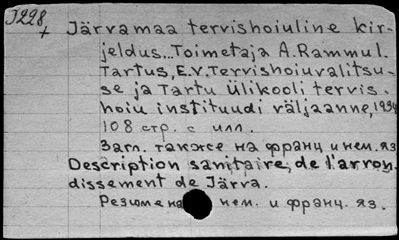 J228
Järvamaa tervishoiuline kir-
jeldus... Toimetaja A. Rammul.
Tartus, E.V. Tervishoiuvalitsu-
se ja Tartu Ülikooli tervis-
hoiu instituudi väljaanne,
108 стр. с илл.
Загл. также на франц и нем. яз
Description sanitaire, de l'arron-
dissement de Järva.
Резюме на нем. и франц. яз.